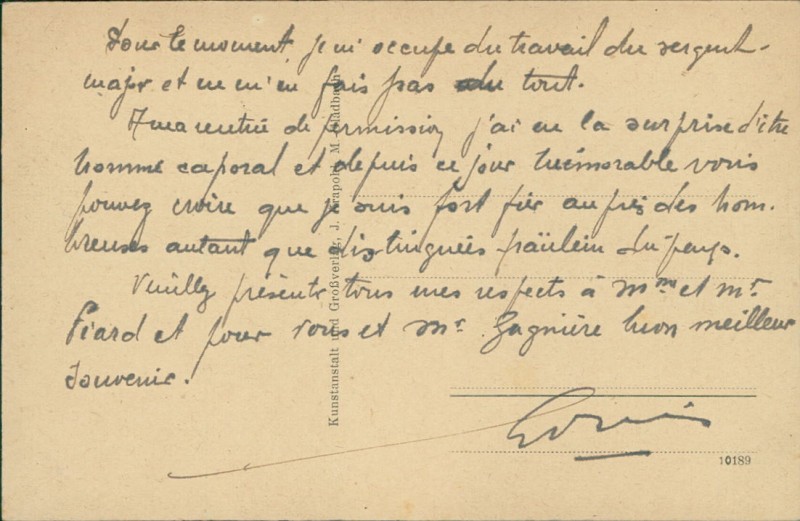 Pour le moment je m'occupe du travail du sergent-
major et ne m'en fais pas du tout.
A ma rentrée de permission j'ai eu la surprise d'être
nommé caporal et depuis ce jour mémorable vous
pouvez croire que je suis fort fier auprès des nom-
breuses autant que distinguées fraülein du pays.
Veuillez présenter tous mes respects à Mme et Mr
Piard et pour vous et Mr Gagnière mon meilleur
souvenir.
Kunstanstalt und Großverlag, J. M. Gladbach
10189